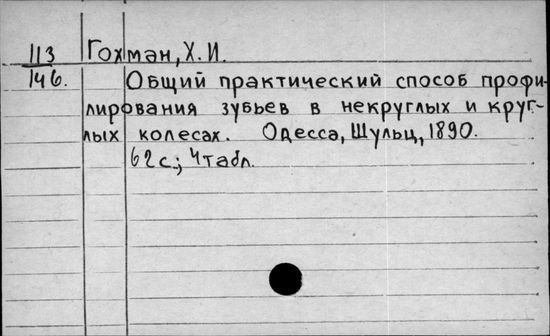 113 Гохман, Х.И.
146. Общий практический способ профи-
лирования зубьев в некруглых и круг-
лых колесах. Одесса, Шульц, 1890.
62с.; 4табл.